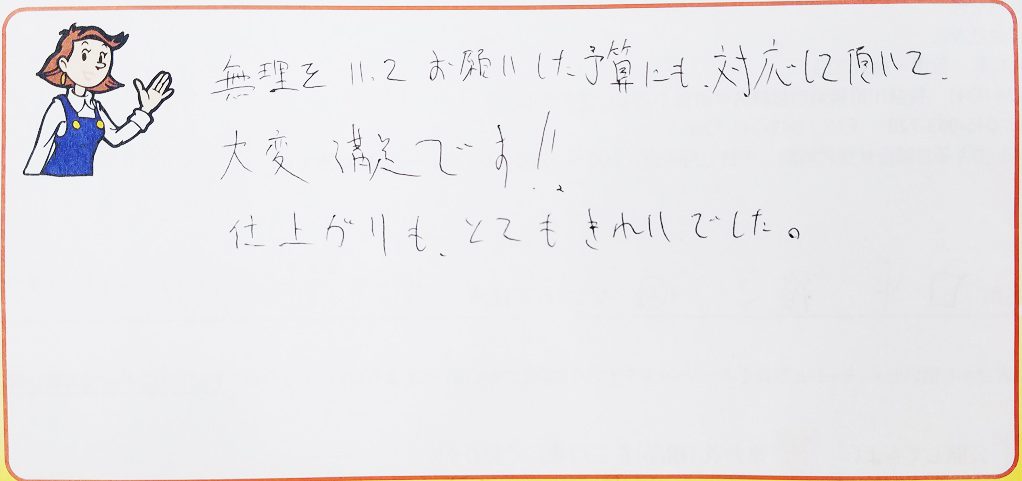 無理を いって お願いした予算にも、対応して頂いて、
大変 満足です!!
仕上がりも、とても きれいでした。